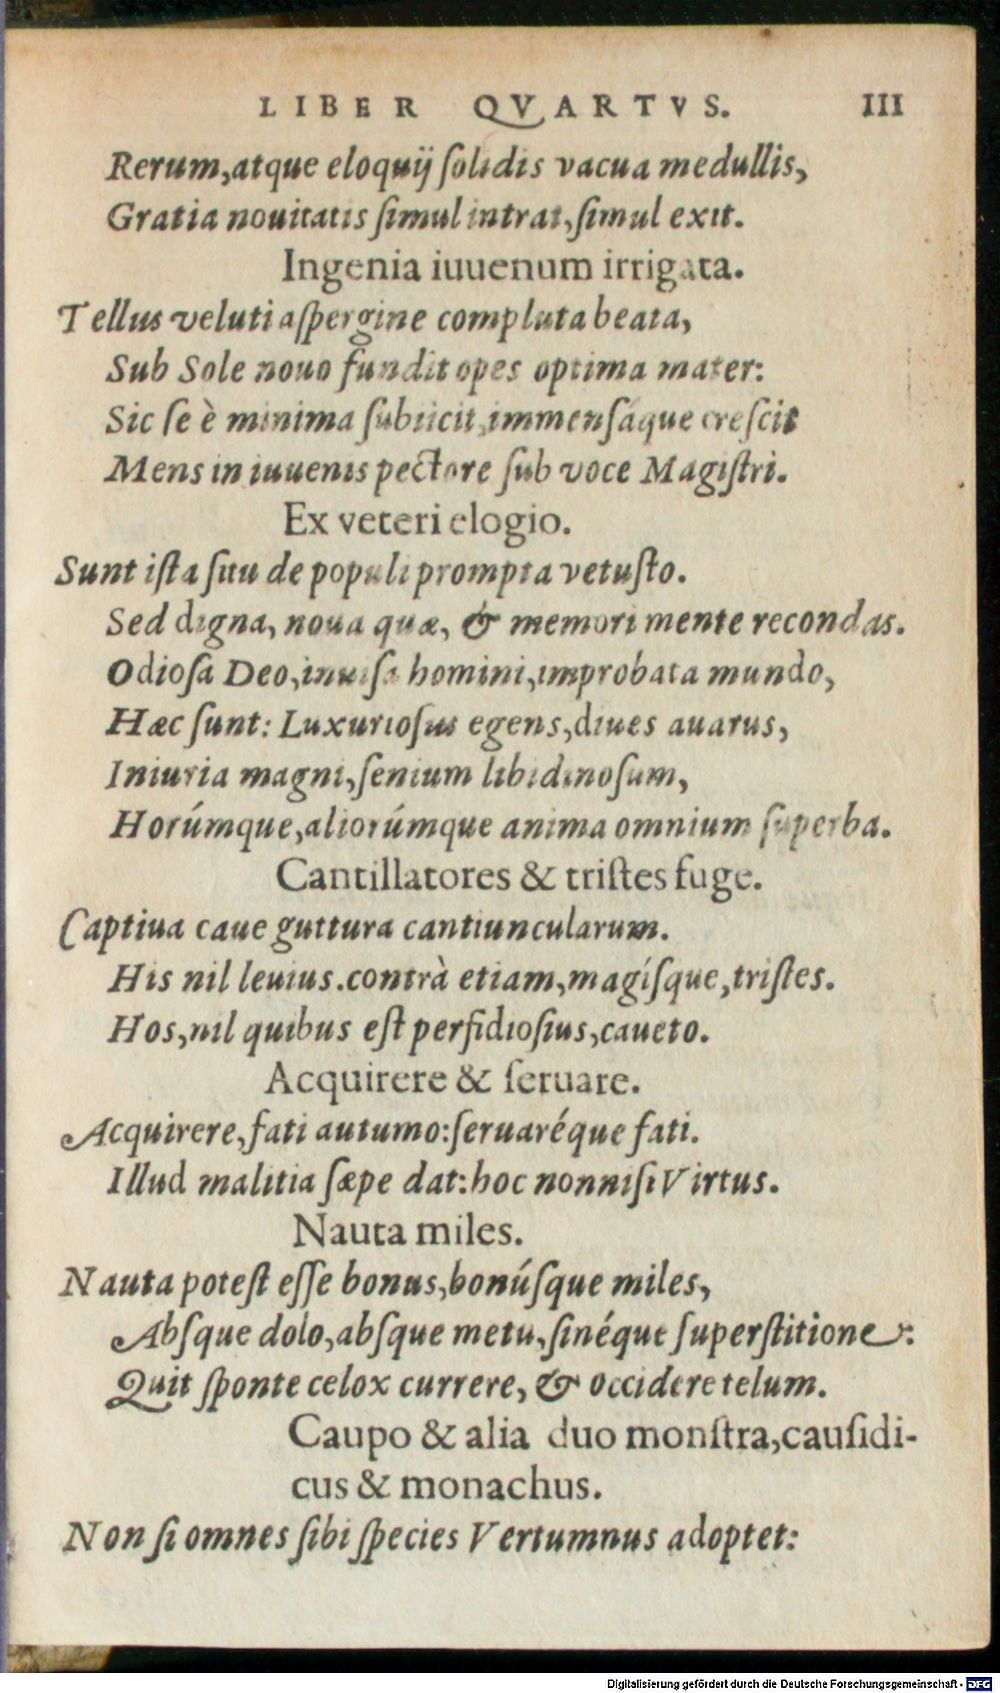 LIBER QVARTVS. III
Rerum,atque eloquij ſolidis vacua medullis,
Gratia nouitatis ſimul intrat,ſimul exit.
Ingenia iuuenum irrigata.
Tellus veluti aſpergine compluta beata,
Sub Sole nouo fundit opes optima mater:
Sic ſe è minima ſubiicit,immenſáque creſcit
Mens in iuuenis pectore ſub voce Magiſtri.
Ex veteri elogio.
Sunt iſta ſitu de populi prompta vetuſto.
Sed digna, noua quæ, & memori mente recondas.
Odioſa Deo,inuiſa homini,improbata mundo,
Hæc ſunt: Luxurioſus egens,diues auarus,
Iniuria magni,ſenium libidinoſum,
Horúmque,aliorúmque anima omnium ſuperba.
Cantillatores & triſtes fuge.
Captiua caue guttura cantiuncularum.
His nil leuius.contrà etiam,magíſque,triſtes.
Hos,nil quibus eſt perfidioſius,caueto.
Acquirere & ſeruare.
Acquirere,fati autumo:ſeruaréque fati.
Illud malitia ſæpe dat:hoc nonniſi Virtus.
Nauta miles.
Nauta poteſt eſſe bonus,bonúſque miles,
Abſque dolo,abſque metu,ſinéque ſuperſtitione:
Quit ſponte celox currere, & occidere telum.
Caupo & alia duo monſtra,cauſidi-
cus & monachus.
Non ſi omnes ſibi ſpecies Vertumnus adoptet:
Digitalisierung gefördert durch die Deutsche Forschungsgemeinschaft - DFG